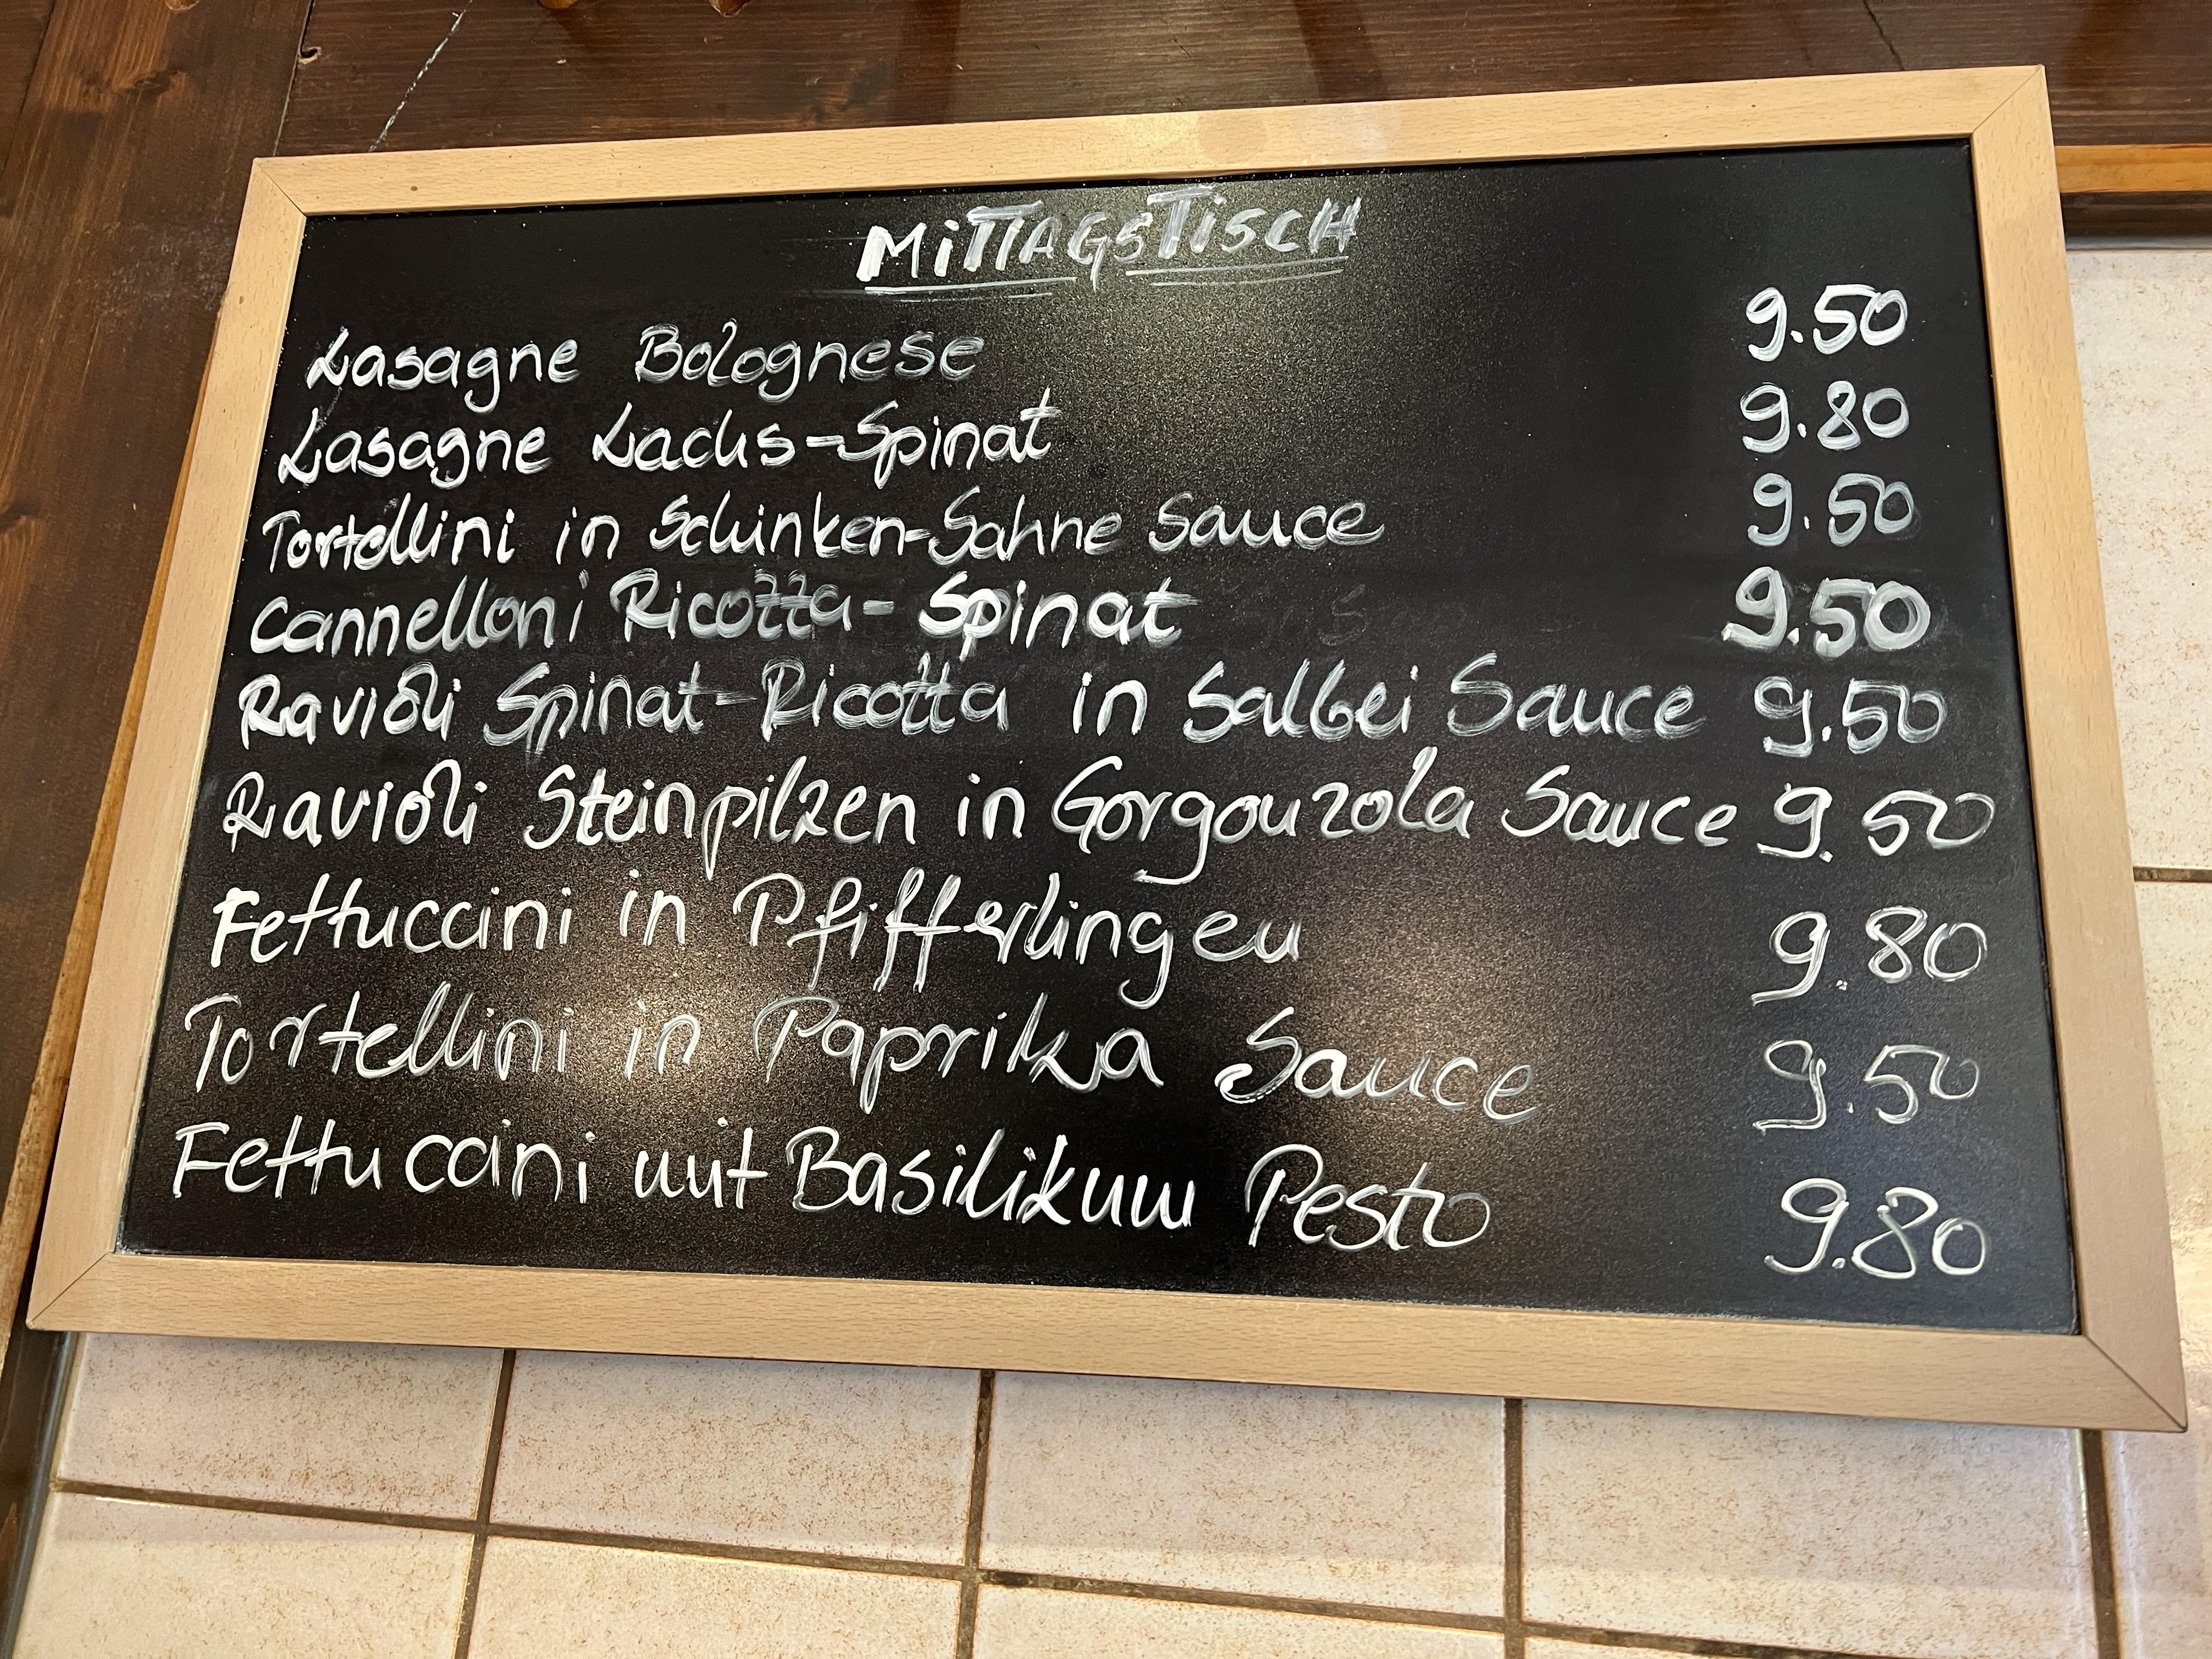 MiTTAGSTiSCH
Lasagne Bolognese 9.50
Lasagne Lachs-Spinat 9.80
Tortellini in Schinken-Sahne Sauce 9.50
Cannelloni Ricotta-Spinat 9.50
Ravioli Spinat-Ricotta in Salbei Sauce 9.50
Ravioli Steinpilzen in Gorgonzola Sauce 9.50
Fettuccini in Pfifferlingen 9.80
Tortellini in Paprika Sauce 9.50
Fettuccini mit Basilikum Pesto 9.80